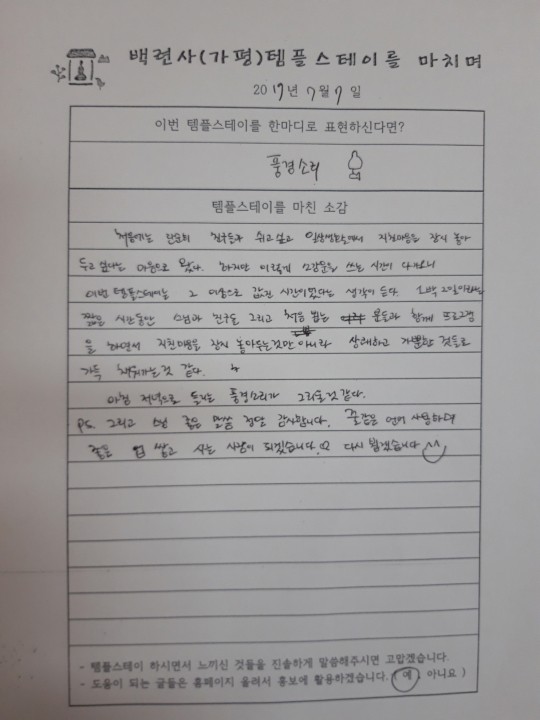 백련사(가평)템플스테이를 마치며
2017년 7월 7일
이번 템플스테이를 한마디로 표현하신다면?
풍경소리
템플스테이를 마친 소감
처음에는 단순히 친구들과 쉬고싶고 일상생활에서 지친마음을 잠시 놓아
두고 싶다는 마음으로 왔다. 하지만 이렇게 소감문을 쓰는 시간이 다가오니
이번 템플스테이는 그 이상으로 값진 시간이었다는 생각이 든다. 1박 2일이라는
짧은 시간동안 스님과 친구들 그리고 처음 뵙는 분들과 함께 프로그램
을 하면서 지친마음을 잠시 놓아두는것만 아니라 상쾌하고 가뿐한 것들로
가득 채워가는것 같다.
아침 저녁으로 듣는 풍경소리가 그리울것 같다.
ps. 그리고 스님 좋은 말씀 정말 감사합니다. 좋같은 언어 사용하며
좋은 업 쌓고 사는 사람이 되겠습니다. 다시 뵙겠습니다 ^^
- 템플스테이 하시면서 느끼신 것들을 진솔하게 말씀해주시면 고맙겠습니다.
- 도움이 되는 글들은 홈페이지 올려서 홍보에 활용하겠습니다. ( 예 , 아니요 )